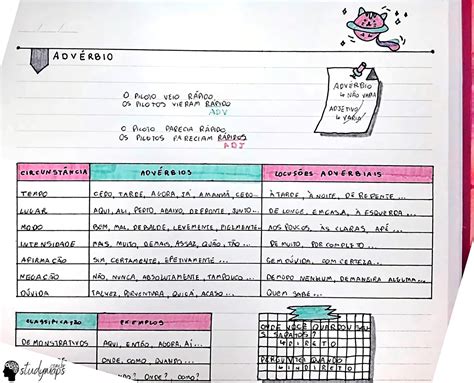 ADVÉRBIO
O PILOTO VEIO RÁPIDO
OS PILOTOS VIERAM RÁPIDO
ADV
O PILOTO PARECIA RÁPIDO
OS PILOTOS PARECIAM RÁPIDOS
ADJ
ADVÉRBIO
↳ NÃO VARIA
ADJETIVO
↳ VARIA
CIRCUNSTÂNCIA ADVÉRBIOS LOCUSÕES ADVERBIAIS
TEMPO CEDO, TARDE, AGORA, JÁ, AMANHÃ, CEDO... À TARDE, À NOITE, DE REPENTE...
LUGAR AQUI, ALI, PERTO, ABAIXO, DEFRONTE, JUNTO... DE LONGE, EM CASA, À ESQUERDA...
MODO BOM, MAL, DEBALDE, LEVEMENTE, FIELMENTE AOS POUCOS, ÀS CLARAS, A PÉ...
INTENSIDADE MAIS, MUITO, DEMAIS, ASSAZ, QUÃO, TÃO... DE MUITO, POR COMPLETO...
AFIRMAÇÃO SIM, CERTAMENTE, EFETIVAMENTE... SEM DÚVIDA, COM CERTEZA...
NEGAÇÃO NÃO, NUNCA, ABSOLUTAMENTE, TAMPOUCO... DE MODO NENHUM, DE MANEIRA ALGUMA...
DÚVIDA TALVEZ, PORVENTURA, QUIÇÁ, ACASO... QUEM SABE...
CLASSIFICAÇÃO EXEMPLOS
DEMONSTRATIVOS AQUI, ENTÃO, AGORA, AÍ...
ONDE, COMO, QUANDO...
ONDE, COMO, QUANDO...
ONDE VOCÊ GUARDOU SEUS
SAPATOS?
↳ DIRETO
PERGUNTO QUANDO
↳ INDIRETO
studymaps